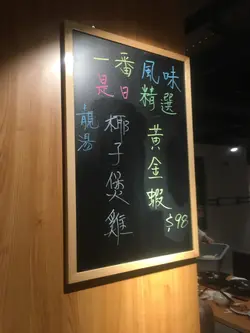 一番風味
是日精選
黃金蝦
$98
椰子煲雞
龍湯